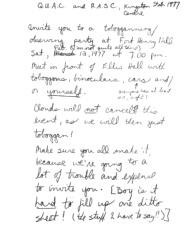 Q.U.A.C. and R.A.S.C., Kingston Feb. 1977
Centre
Invite you to a tobogganing/
observing party at Fort Henry Hill
Sat, 1977 at 7:00 pm.
Meet in front of Ellis Hall with
toboggans, binoculars, cars and/
or yourself.
Clouds will not cancel this
event, as we will then just
toboggan!
Make sure you all make it,
because we're going to a
lot of trouble and expense
to invite you. [Boy is it
hard to fill up one ditto
sheet! (the stuff I have to say!!)]